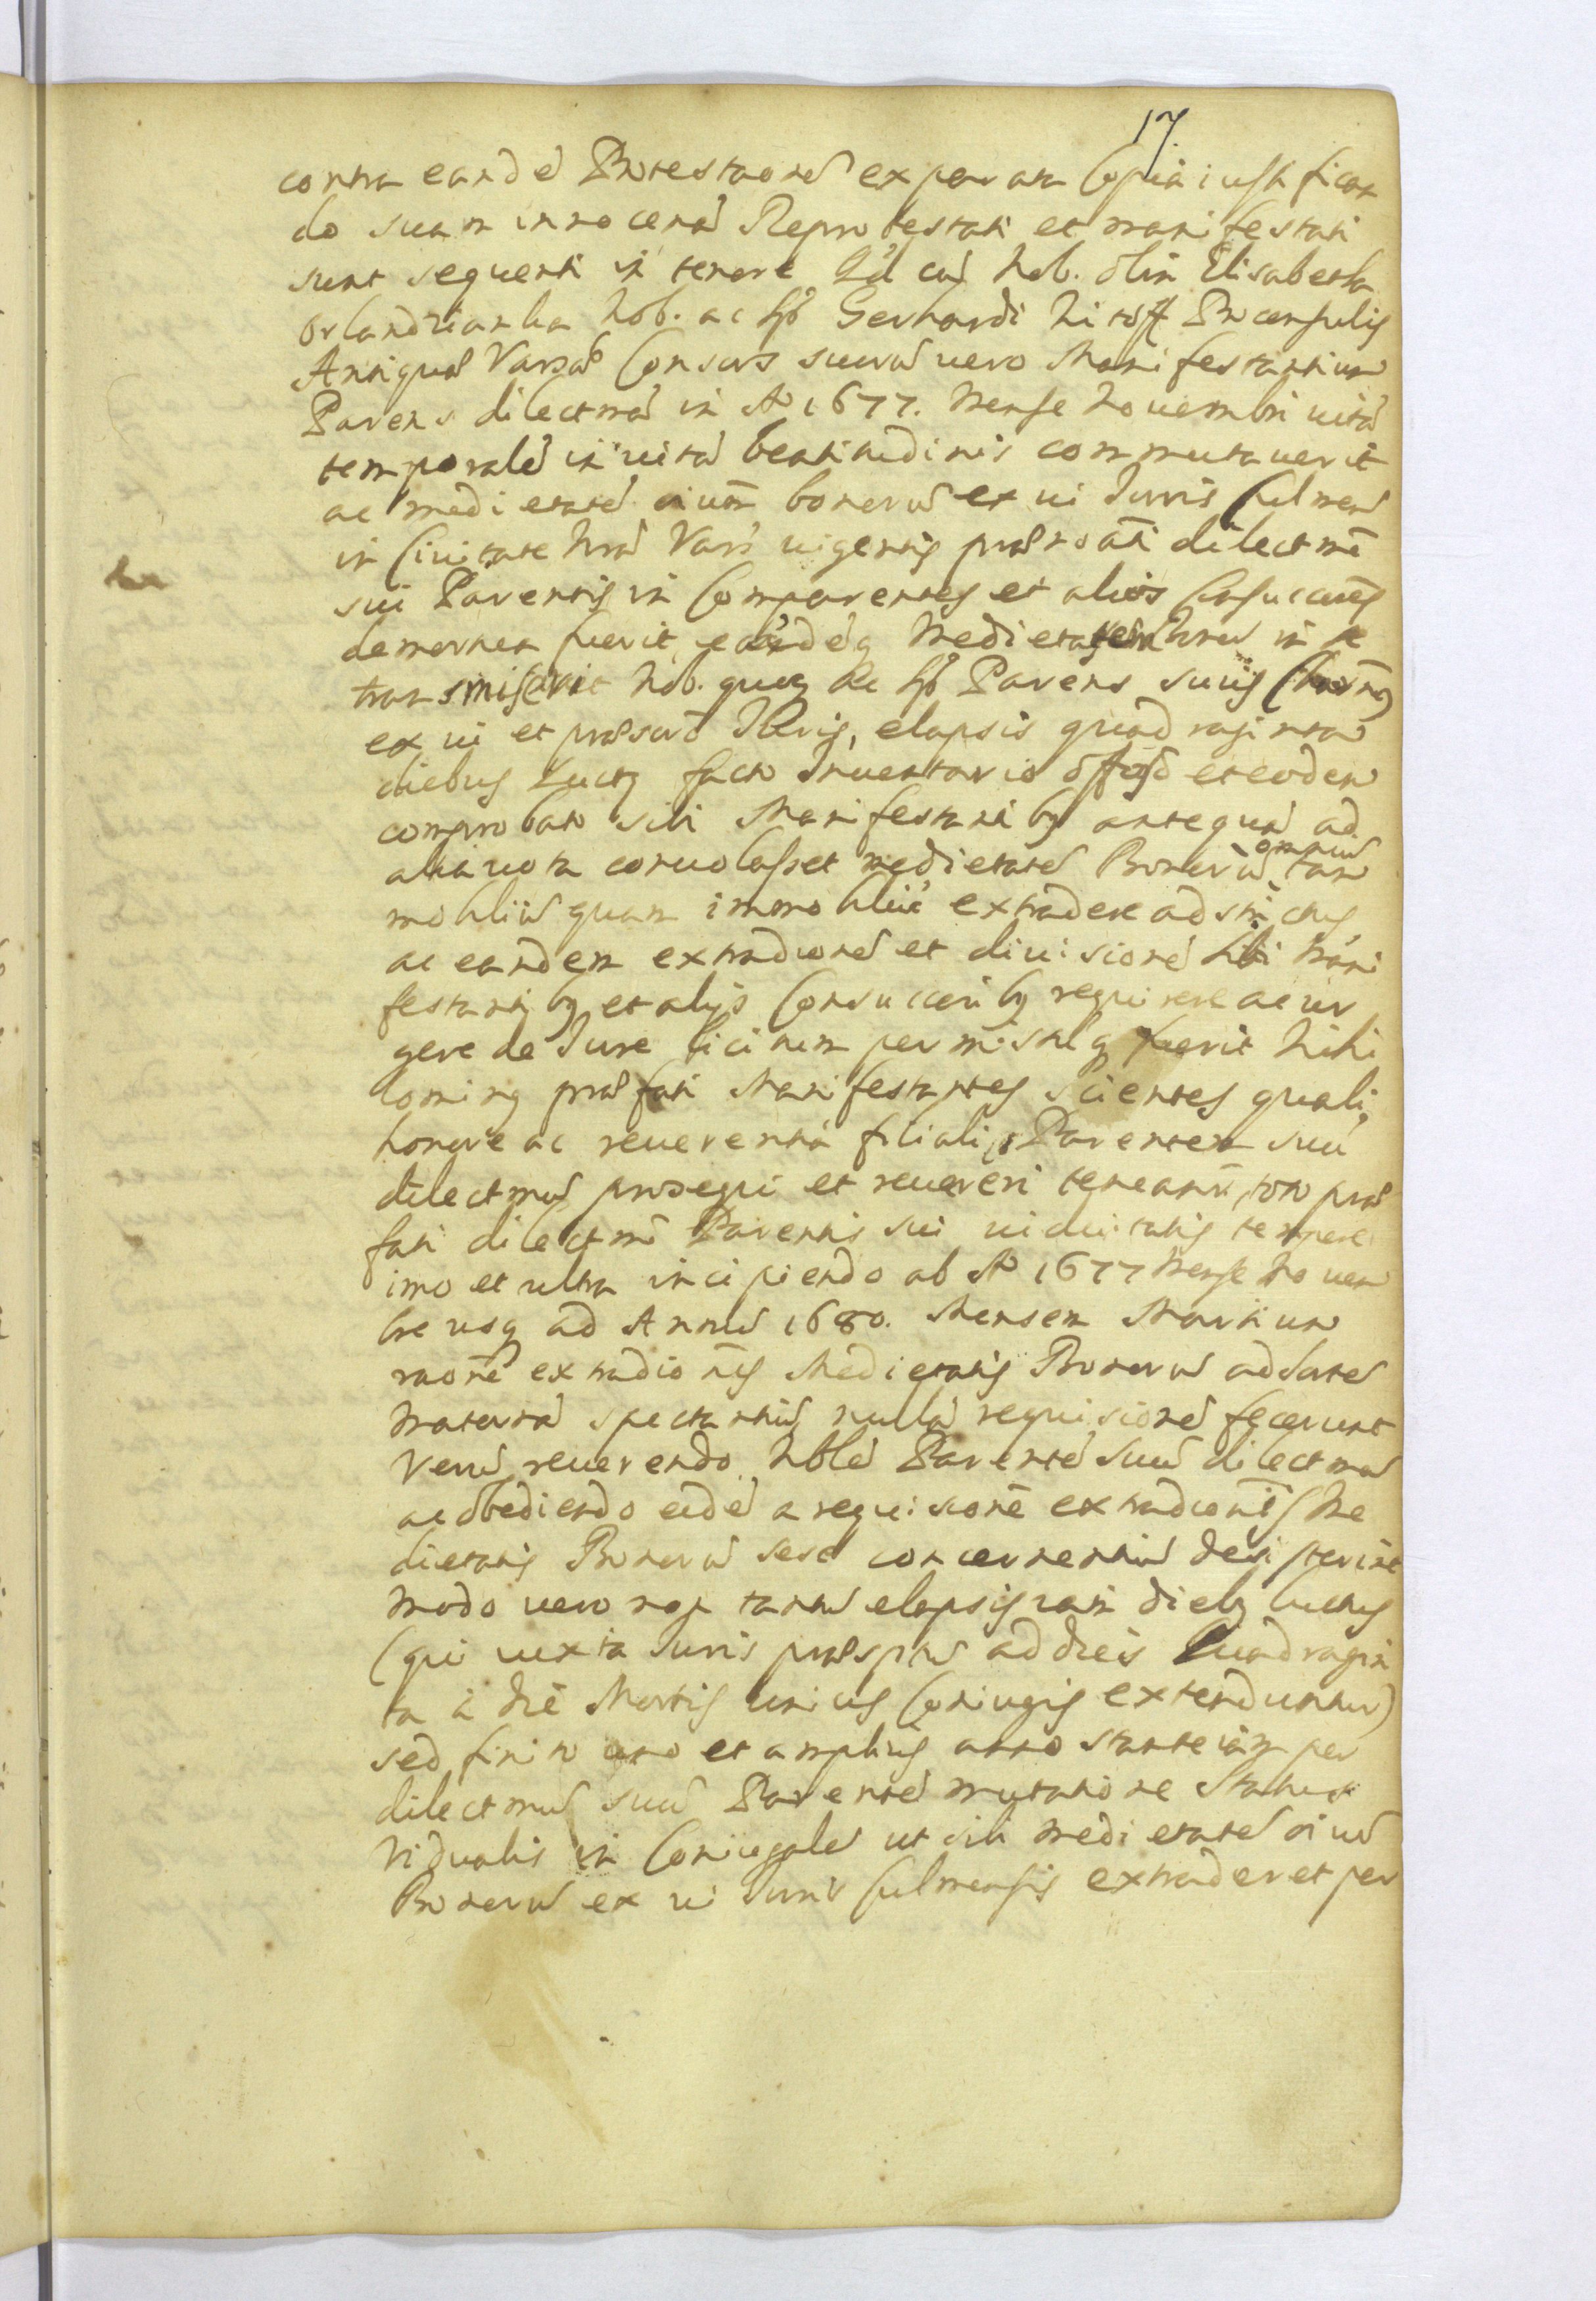 17
contra eandē Protestaonē ex parata Copia iustifican
do suam innocenā Reprotestati et manifestati
sunt sequenti in tenore Qd cū Nob. olim Elisabetha
Orlandzianka Nob. ac Sp Gerhardi Witoff Proconsulis
Antiquae Varsae Consors suorū vero Manifestantium
Parens dilectmā in Ao 1677. Mense Novembri vitā
temporalē in vitā beatitudinis commutaverit
ac medietatē oium bonorū ex vi Iuris Culmen
in Civitate hac Vars vigentis praenoāti dilectmē
sui Parentis in Comparentes et alios Consucces
demortua fuerit, eādēq Medietatem in se
transmiserit Nob. quoq Ac Sp Parens suus
ex vi et praesord Iuris, elapsis quadraginta
diebus Luctq facto Inventario et eodem
comprobato sibi Manifestantibq antequā ad
alia vota convolasset medietatē Bonorū omniū tam
mobiliū quam immobiliū extradere adstrictus
ac eandem extradionē et divisionē sibi Mani
festantibq et alijs Consuccribq requirere ac ur
gere de Iure licitum permissūq fuerit Nihi
lominq praefati Manifestantes Scientes quali
honore ac reverentiā filiali Parentem suū
dilectmū prosequi et revereri teneantr, toto prae
fati dilectmi Parentis sui viduitatis tempore
imo et ultra incipiendo ab Ao 1677 Mense Novem
bre usq ad Annū 1680. Mensem Martium
raone extradionis Medietatis Bonorū ad sortē
Maternā spectantiū nullā requisionē fecerunt
Verū reverendo Nblē Parentē suū dilectmū
ac obediendo eidē a requisionē extradionis Me
dietatis Bonorū sese concernentiū destiterint
Modo vero non tantū elapsis iam diebq luctus
(qui iuxta Iuris praesptū ad dies Quadragin
ta à die Mortis unius Coniugis extenduntur)
sed finito uno et amplius anno stante iam per
dilectmū suū Parentē mutatione Status
Vidualis in Coniugalē ut sibi Medietatē oiū
Bonorū ex vi Iuris Culmensis extraderet per